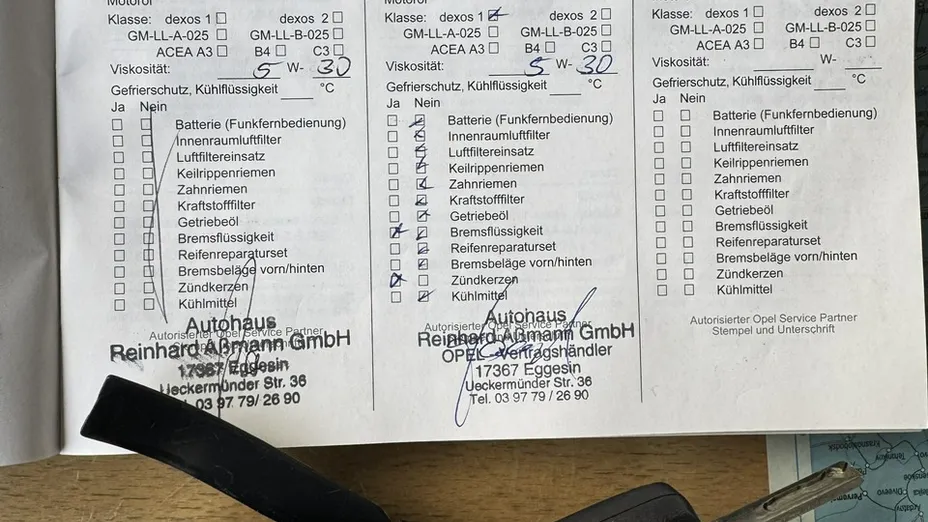 Motoröl
Klasse: dexos 1 dexos 2
GM-LL-A-025 GM-LL-B-025
ACEA A3 B4 C3
Viskosität: 5 W- 30
Gefrierschutz, Kühlflüssigkeit °C
Ja Nein
Batterie (Funkfernbedienung)
Innenraumluftfilter
Luftfiltereinsatz
Keilrippenriemen
Zahnriemen
Kraftstofffilter
Getriebeöl
Bremsflüssigkeit
Reifenreparaturset
Bremsbeläge vorn/hinten
Zündkerzen
Kühlmittel
Autorisierter Opel Service Partner
Autohaus
Reinhard Aßmann GmbH
17367 Eggesin
Ueckermünder Str. 36
Tel. 03 97 79/ 26 90
Motoröl
Klasse: dexos 1 dexos 2
GM-LL-A-025 GM-LL-B-025
ACEA A3 B4 C3
Viskosität: 5 W- 30
Gefrierschutz, Kühlflüssigkeit °C
Ja Nein
Batterie (Funkfernbedienung)
Innenraumluftfilter
Luftfiltereinsatz
Keilrippenriemen
Zahnriemen
Kraftstofffilter
Getriebeöl
Bremsflüssigkeit
Reifenreparaturset
Bremsbeläge vorn/hinten
Zündkerzen
Kühlmittel
Autorisierter Opel Service Partner
Autohaus
Reinhard Aßmann GmbH
OPEL - Vertragshändler
17367 Eggesin
Ueckermünder Str. 36
Tel. 03 97 79 / 26 90
Klasse: dexos 1 dexos 2
GM-LL-A-025 GM-LL-B-025
ACEA A3 B4 C3
Viskosität: W-
Gefrierschutz, Kühlflüssigkeit °C
Ja Nein
Batterie (Funkfernbedienung)
Innenraumluftfilter
Luftfiltereinsatz
Keilrippenriemen
Zahnriemen
Kraftstofffilter
Getriebeöl
Bremsflüssigkeit
Reifenreparaturset
Bremsbeläge vorn/hinten
Zündkerzen
Kühlmittel
Autorisierter Opel Service Partner
Stempel und Unterschrift